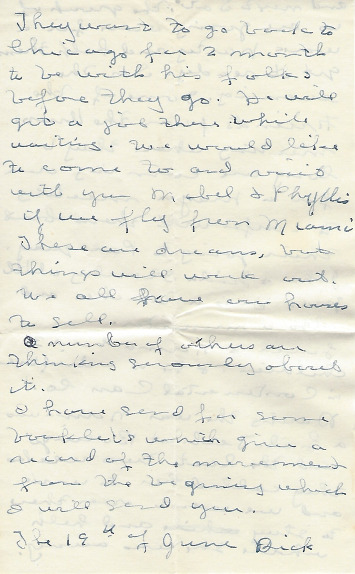 They want to go back to
Chicago for 2 month
to be with his folks
before they go. He will
get a job there while
waiting. We would like
to come to and visit
with you Mabel & Phyllis
if we fly from Miami
These are dreams, but
things will work out.
We all have our houses
to sell.
a number of others are
thinking seriously about
it.
I have send for some
booklets which give a
record of the movement
from the begining which
I will send you.
The 19th of June Dick